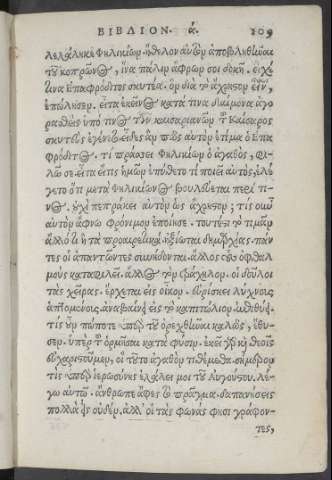 ΒΙΒΛΙΟΝ. ά. 109
λελάληκε Φηλικίων. ἤθελον αὐτὸν ἀποβληθῆναι
τοῦ κοπρῶνος, ἵνα πάλιν ἄφρων σοι δοκῇ. εἶχέ
τινα Ἐπαφρόδιτος σκυτέα. ὃν διὰ τὸ ἄχρηστον εἶναι,
ἐπώλησεν. εἶτα ἐκεῖνος κατά τινα δαίμονα ἀγο
ρασθεὶς ὑπό τινος τῶν καισαριανῶν τοῦ Καίσαρος
σκυτεὺς ἐγένετο. εἶδες ἂν πῶς αὐτὸν ἐτίμα ὁ Επα
φρόδιτος. τί πράσσει Φηλικίων ὁ ἀγαθός, φι
λῶ σε. εἶτα εἴ τις ἡμῶν ἐπύθετο τί ποιεῖ αὐτὸς, ἐλέ
γετο ὅτι μετὰ Φηλικίωνος βουλεύεται περί τι
νος. οὐχὶ πεπράκει αὐτὸν ὡς ἄχρηστον; τίς οὖν
αὐτὸν ἄφνω φρόνιμον ἐποίησε. τουτέστι τὸ τιμᾶν
ἄλλό τι ἢ τὰ προαιρετικά. ἠξίωται δημαρχίας. πάν
τες οἱ ἀπαντῶντες συνήδονται. ἄλλος τοὺς ὀφθαλ
μοὺς καταφιλεῖ. ἄλλος τὸν τράχηλον. οἱ δοῦλοι
τὰς χεῖρας. ἔρχεται εἰς οἶκον. εὑρίσκει λύχνους
ἁπτομένους. ἀναβαίνει εἰς τὸ καπιτώλιον. ἐπιθύει.
τίς οὖν πώποτε ὑπὲρ τοῦ ὀρεχθῆναι καλῶς, ἔθυ
σεν. ὑπὲρ τοῦ ὁρμῆσαι κατὰ φύσιν. ἐκεῖ γὰρ καὶ θεοῖς
εὐχαριστοῦμεν, οὗ τὸ ἀγαθὸν τιθέμεθα. σήμερόν
τις ὑπὲρ ἱερωσύνης ἐλάλει μοι τοῦ Αὐγούστου. λέ
γω αὐτῷ. ἄνθρωπε ἄφες τὸ πρᾶγμα. δαπανήσεις
πολλὰ εἰς οὐδέν. ἀλλ' οἱ τὰς φωνὰς φησι γράφον-
τες,